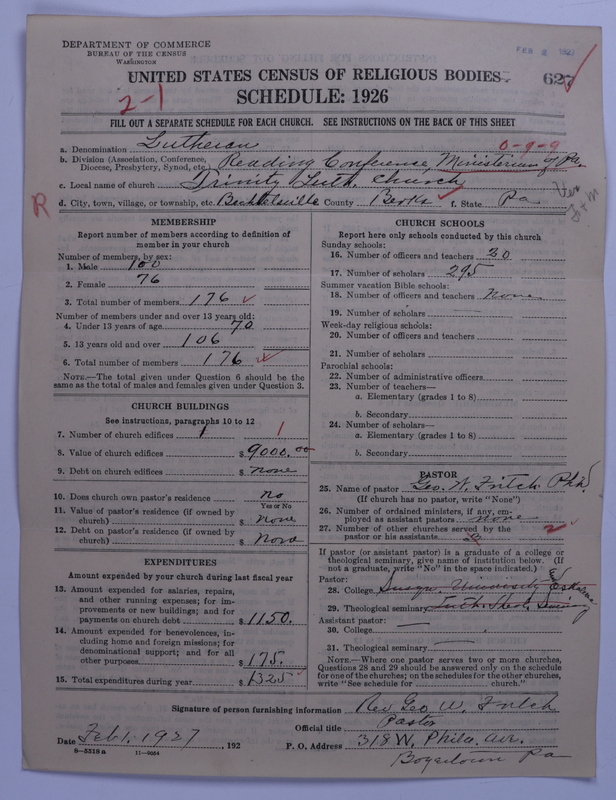 DEPARTMENT OF COMMERCE
BUREAU OF THE CENSUS
WASHINGTON
FEB 2 1927
UNITED STATES CENSUS OF RELIGIOUS BODIES
627
SCHEDULE: 1926
2-1
FILL OUT A SEPARATE SCHEDULE FOR EACH CHURCH. SEE INSTRUCTIONS ON THE BACK OF THIS SHEET
a. Denomination Lutheran 0-9-9
b. Division (Association, Conference, Diocese, Presbytery, Synod, etc.) Reading Conference, Ministerium of Pa.
c. Local name of church Trinity Luth. Church
d. City, town, village, or township, etc. Bechtelsville County Berks f. State Pa
R
MEMBERSHIP
Report number of members according to definition of
member in your church
Number of members, by sex:
1. Male 100
2. Female 76
3. Total number of members 176
Number of members under and over 13 years old:
4. Under 13 years of age 70
5. 13 years old and over 106
6. Total number of members 176
NOTE.—The total given under Question 6 should be the
same as the total of males and females given under Question 3.
CHURCH BUILDINGS
See instructions, paragraphs 10 to 12
7. Number of church edifices 1 1
8. Value of church edifices $ 9000.00
9. Debt on church edifices $ none
10. Does church own pastor's residence no
Yes or No
11. Value of pastor's residence (if owned by
church) $ none
12. Debt on pastor's residence (if owned by
church) $ none
EXPENDITURES
Amount expended by your church during last fiscal year
13. Amount expended for salaries, repairs,
and other running expenses; for im-
provements or new buildings; and for
payments on church debt $ 1150.
14. Amount expended for benevolences, in-
cluding home and foreign missions; for
denominational support; and for all
other purposes $ 175.
15. Total expenditures during year $ 1325
CHURCH SCHOOLS
Report here only schools conducted by this church
Sunday schools:
16. Number of officers and teachers 30
17. Number of scholars 295
Summer vacation Bible schools:
18. Number of officers and teachers none
19. Number of scholars
Week-day religious schools:
20. Number of officers and teachers
21. Number of scholars
Parochial schools:
22. Number of administrative officers
23. Number of teachers—
a. Elementary (grades 1 to 8)
b. Secondary
24. Number of scholars—
a. Elementary (grades 1 to 8)
b. Secondary
PASTOR
25. Name of pastor Geo. W. Fritch
(If church has no pastor, write "None")
26. Number of ordained ministers, if any, em-
ployed as assistant pastors none
27. Number of other churches served by the
pastor or his assistants 2
If pastor (or assistant pastor) is a graduate of a college or
theological seminary, give name of institution below. (If
not a graduate, write "No" in the space indicated.)
Pastor:
28. College University
29. Theological seminary Luth. Theol.
Assistant pastor:
30. College
31. Theological seminary
NOTE.—Where one pastor serves two or more churches,
Questions 28 and 29 should be answered only on the schedule
for one of the churches; on the schedules for the other churches,
write "See schedule for church."
Signature of person furnishing information Rev Geo. W. Fritch
Official title Pastor
Date Feb 1, 1927, 192 P. O. Address 318 W. Phila. Ave.
8—5318 a 11—9084 Boyertown Pa